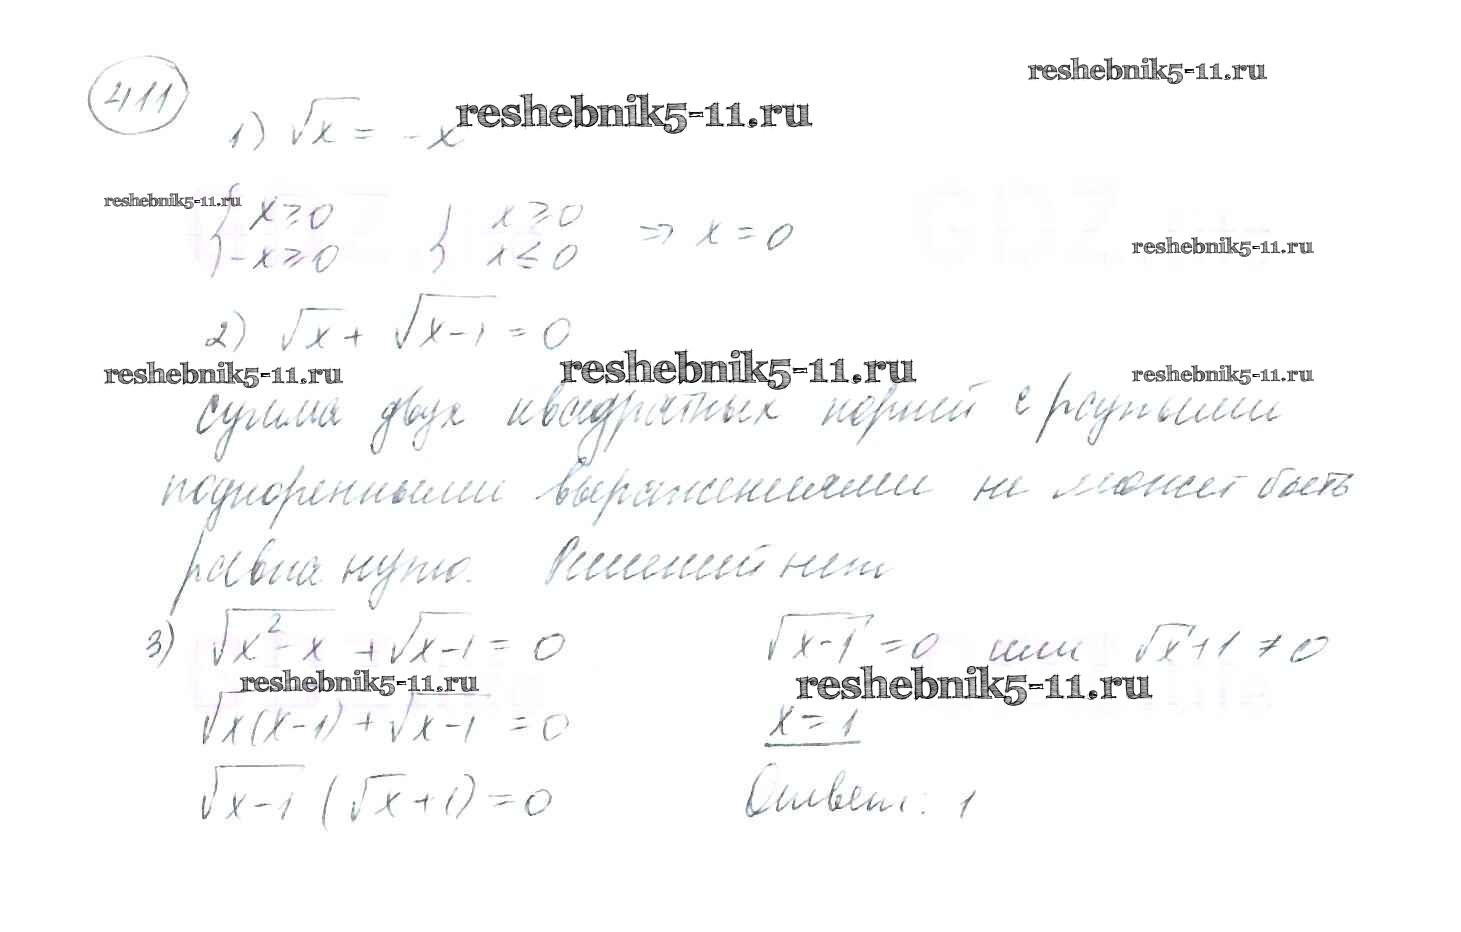 411
reshebnik5-11.ru
1) √x = -x reshebnik5-11.ru
reshebnik5-11.ru
{ x ≥ 0 { x ≥ 0 ⇒ x = 0
-x ≥ 0 x ≤ 0
reshebnik5-11.ru
2) √x + √(x-1) = 0
reshebnik5-11.ru reshebnik5-11.ru reshebnik5-11.ru
сумма двух квадратных корней с разными
подкоренными выражениями не может быть
равна нулю. Решений нет
3) √(x²-x) + √(x-1) = 0
reshebnik5-11.ru
√(x(x-1)) + √(x-1) = 0
√(x-1) (√x+1) = 0
√(x-1) = 0 или √x+1 ≠ 0
reshebnik5-11.ru
x = 1
Ответ: 1